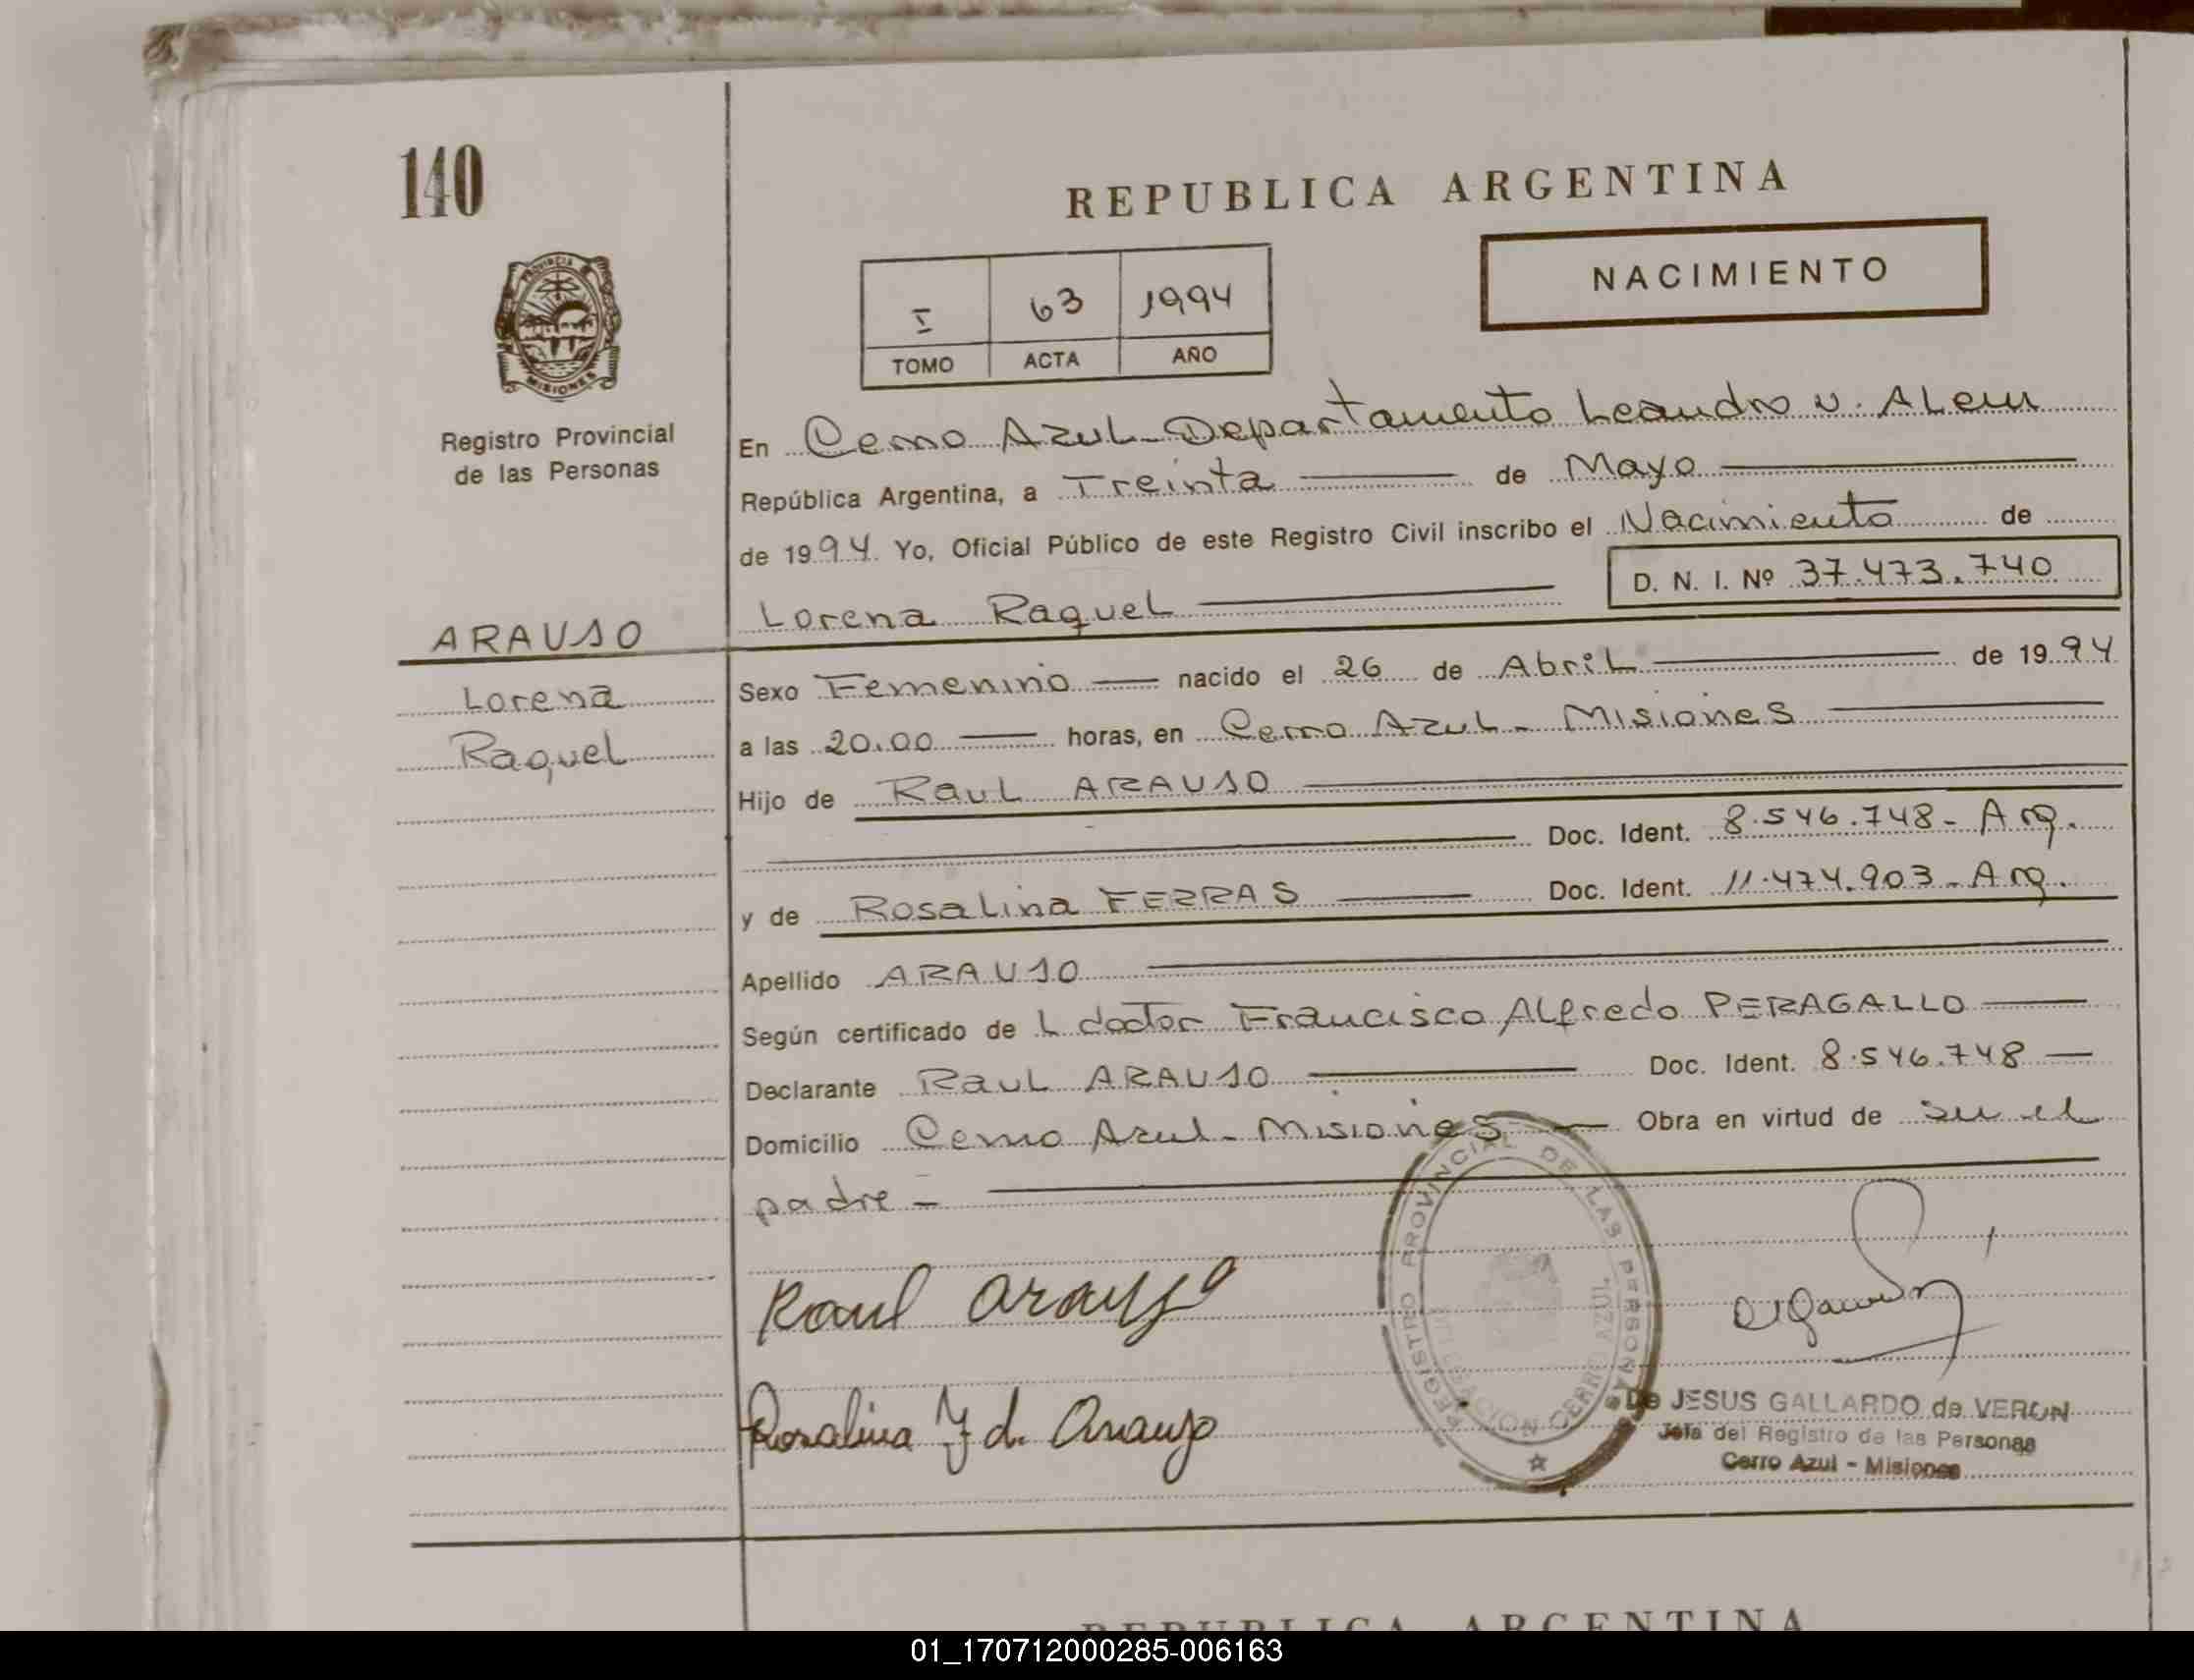 140
REPUBLICA ARGENTINA
NACIMIENTO
I 63 1994
TOMO ACTA AÑO
PROVINCIA
MISIONES
Registro Provincial
de las Personas
En Cerro Azul - Departamento Leandro N. Alem
República Argentina, a Treinta de Mayo
de 1994. Yo, Oficial Público de este Registro Civil inscribo el Nacimiento de
D. N. I. Nº 37.473.740
Lorena Raquel
ARAUJO
Lorena
Raquel
Sexo Femenino nacido el 26 de Abril de 1994
a las 20.00 horas, en Cerro Azul - Misiones
Hijo de Raul ARAUJO
Doc. Ident. 8.546.748 - Arg.
y de Rosalina FERRAS Doc. Ident. 11.474.903 - Arg.
Apellido ARAUJO
Según certificado de l doctor Francisco Alfredo PERAGALLO
Declarante Raul ARAUJO Doc. Ident. 8.546.748
Domicilio Cerro Azul - Misiones Obra en virtud de ser el
padre -
Raul Araujo
Rosalina F d. Araujo
REGISTRO PROVINCIAL DE LAS PERSONAS
DELEGACION CERRO AZUL
De JESUS GALLARDO de VERON
Jefa del Registro de las Personas
Cerro Azul - Misiones
REPUBLICA ARGENTINA
01_170712000285-006163